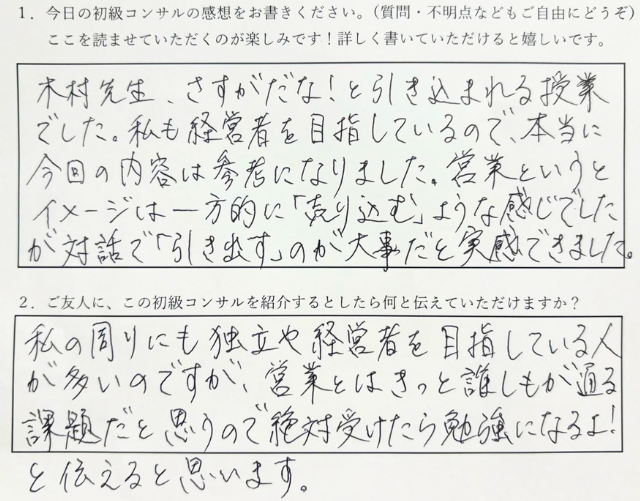 1．今日の初級コンサルの感想をお書きください。（質問・不明点などもご自由にどうぞ）
ここを読ませていただくのが楽しみです！詳しく書いていただけると嬉しいです。
木村先生、さすがだな！と引き込まれる授業
でした。私も経営者を目指しているので、本当に
今回の内容は参考になりました。営業というと
イメージは一方的に「売り込む」ような感じでした
が対話で「引き出す」のが大事だと実感できました。
2．ご友人に、この初級コンサルを紹介するとしたら何と伝えていただけますか？
私の周りにも独立や経営者を目指している人
が多いのですが、営業とはきっと誰しもが通る
課題だと思うので絶対受けたら勉強になるよ！
と伝えると思います。